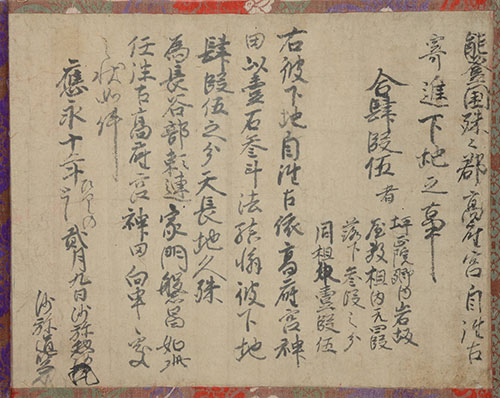 能登国珠々郡高座宮自往古
寄進下地之事
合肆段伍者
坪正院郷内岩坂
屋敷相内元四段
落下参段之分
同相壹段伍
右彼下地自往古依高座宮神
田以壹石参斗法彼下地
肆段伍之分天長地久殊
為長谷部頼連家門繁昌如此
任往古高座宮神田
之状如件
應永十二年 貳月九日沙弥
沙弥道